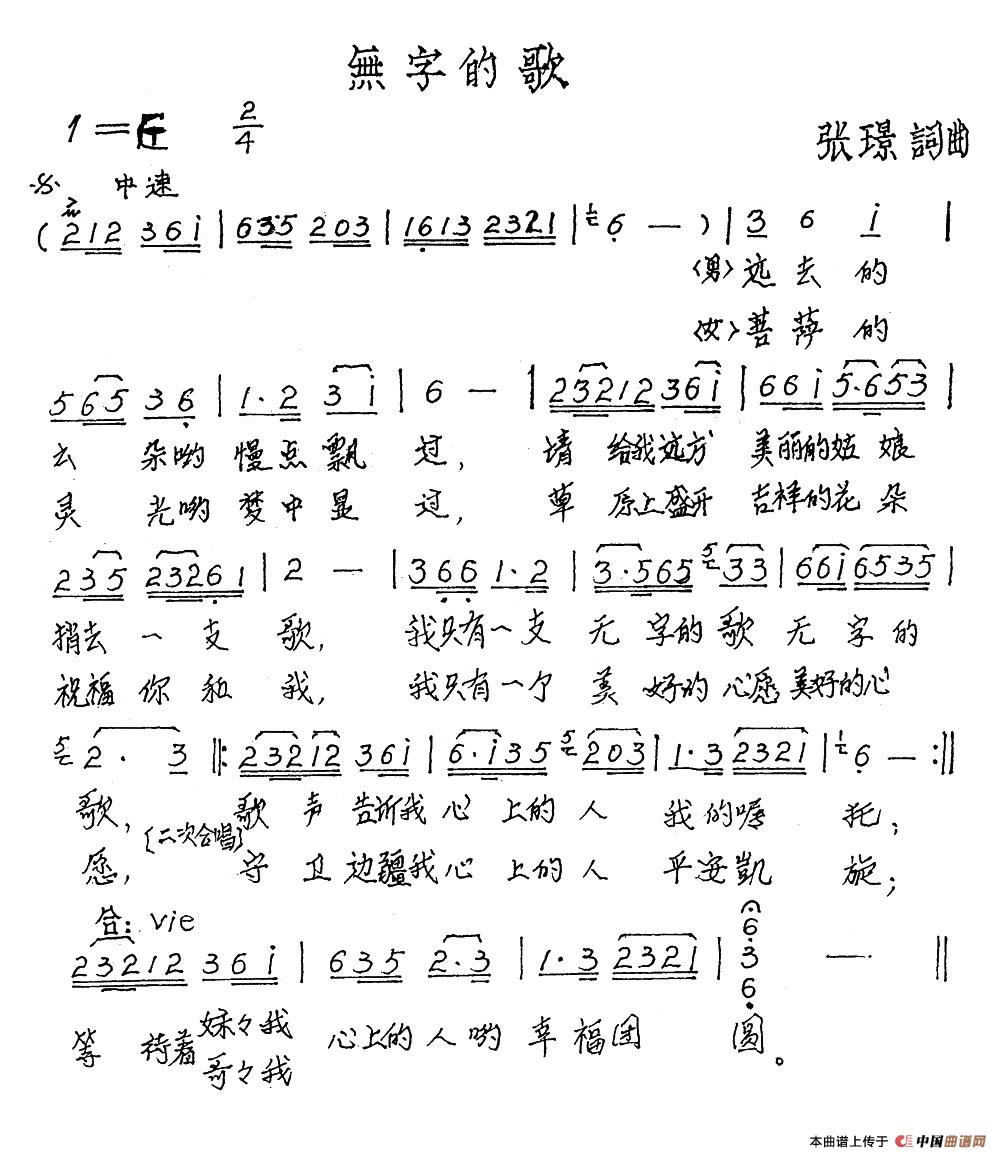 無字的歌
1=E 2/4
张璟詞曲
中速
(212 361|635 203|1613 2321|6 —)|3 6 1|
〈男〉远去的
〈女〉菩萨的
565 36|1·2 3 1|6 —|23212 361|661 5·653|
云 朵哟 慢点飘 过, 请 给我远方 美丽的姑 娘
灵 光哟 梦中显 过, 草 原上盛开 吉祥的花 朵
235 23261|2 —|366 1·2|3·565 5 33|661 6535|
捎去 一 支 歌, 我只有一支 无 字的 歌 无 字 的
祝福 你 和 我, 我只有一个 美 好的 心愿 美好的心
5 2· 3‖:23212 361|6·135 5 203|1·3 2321|6 —:‖
歌, 歌 声 告诉我 心 上的 人 我 的嘱 托;
〔二次合唱〕
愿, 守 卫 边疆我 心 上的 人 平安凱 旋;
合: vie
23212 361|635 2·3|1·3 2321|6 3 6 —‖
等 待着 妹々我 心上的 人 哟 幸 福团 圆。
哥々我
本曲谱上传于 中国曲谱网